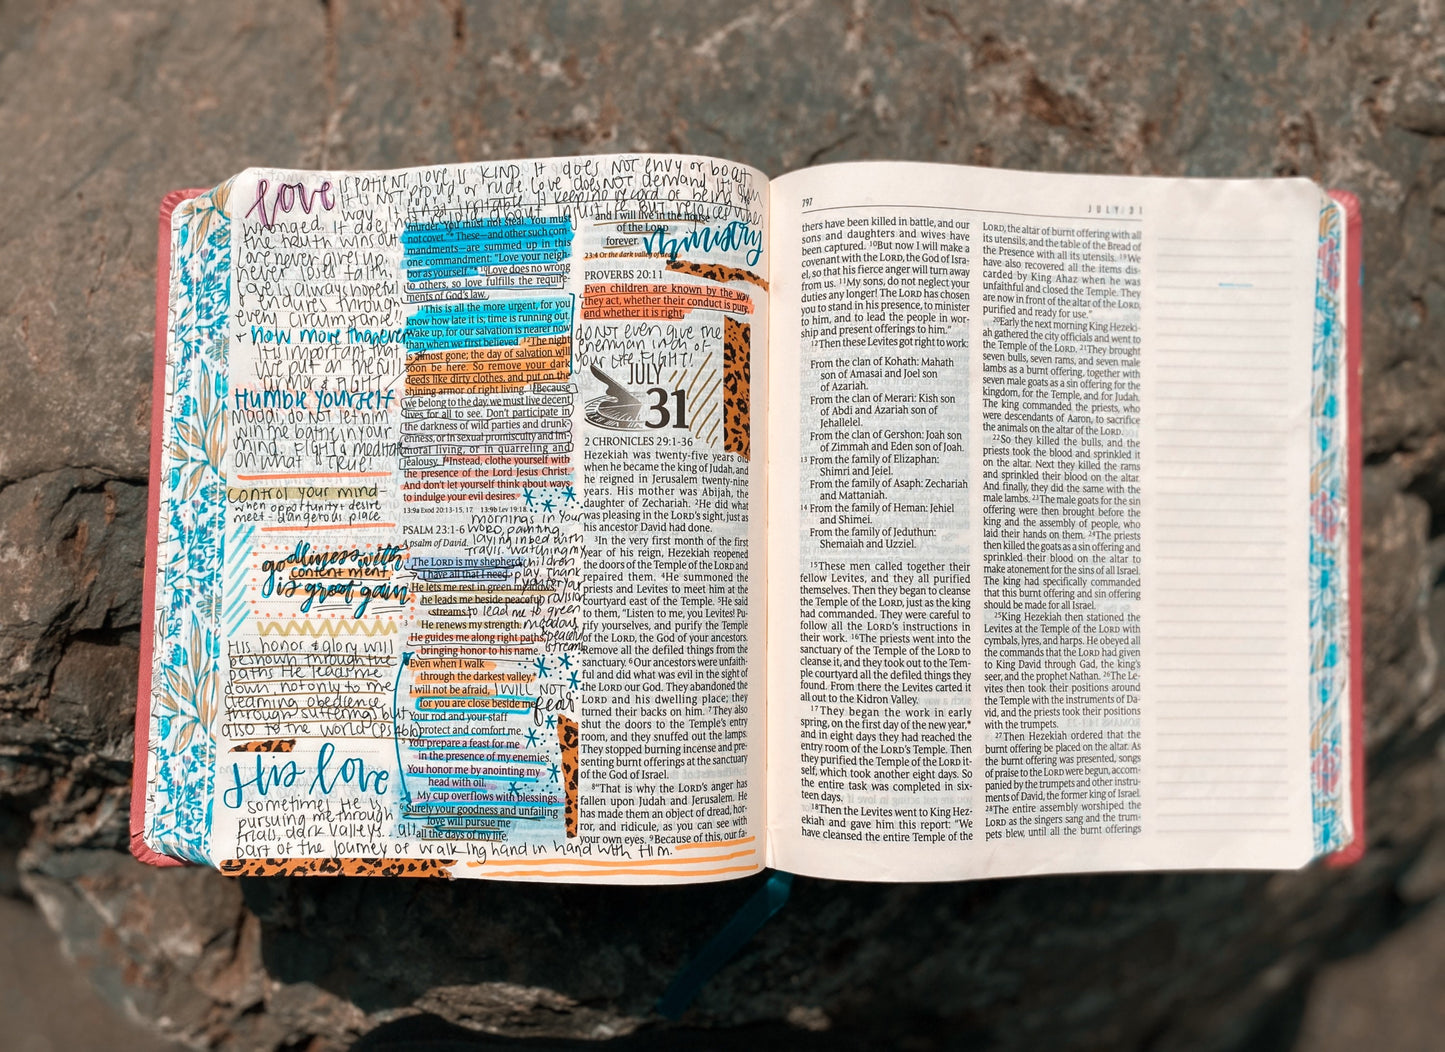 love is patient, love is kind. It does NOT envy or boast
is NOT proud or rude. Love does NOT demand its own
way
wronged. It does
the truth wins out
love never gives up,
never loses faith,
is always hopeful
endures through
every circumstance
+ now more than ever
it's important that
we put on the full
armor & FIGHT
Humble yourself
Maddi, do not let him
win the battle in your
mind. Fight & meditate
on what is TRUE!
control your mind-
when opportunity & desire
meet = dangerous place
godliness with
contentment
is great gain
His honor & glory will
be shown through the
paths He leads me
down not only to me
claiming obedience
through suffering but
also to the world (PS 106)
His love
sometimes He is
pursuing me through
trials, dark valleys... all
part of the journey of walking hand in hand with Him.
murder. You must not steal. You must
not covet.”* These—and other such com-
mandments—are summed up in this
one commandment: “Love your neigh-
bor as yourself.”* ¹⁰Love does no wrong
to others, so love fulfills the require-
ments of God’s law.
¹¹This is all the more urgent, for you
know how late it is; time is running out.
Wake up, for our salvation is nearer now
than when we first believed. ¹²The night
is almost gone; the day of salvation will
soon be here. So remove your dark
deeds like dirty clothes, and put on the
shining armor of right living. ¹³Because
we belong to the day, we must live decent
lives for all to see. Don’t participate in
the darkness of wild parties and drunk-
enness, or in sexual promiscuity and im-
moral living, or in quarreling and
jealousy. ¹⁴Instead, clothe yourself with
the presence of the Lord Jesus Christ.
And don’t let yourself think about ways
to indulge your evil desires.
13:9a Exod 20:13-15, 17. 13:9b Lev 19:18.
PSALM 23:1-6
A psalm of David.
mornings in your
word, painting,
laying in bed with
Travis. watching my
children
play. Thank
you for your
provision
to lead me to green
meadows
peaceful
streams
¹ The LORD is my shepherd;
I have all that I need.
² He lets me rest in green meadows;
he leads me beside peaceful
streams.
³ He renews my strength.
He guides me along right paths,
bringing honor to his name.
⁴ Even when I walk
through the darkest valley,*
I will not be afraid,
for you are close beside me.
I WILL NOT
fear
Your rod and your staff
protect and comfort me.
⁵ You prepare a feast for me
in the presence of my enemies.
You honor me by anointing my
head with oil.
My cup overflows with blessings.
⁶ Surely your goodness and unfailing
love will pursue me
all the days of my life,
and I will live in the house
of the LORD
forever.
23:4 Or the dark valley of death.
ministry
PROVERBS 20:11
Even children are known by the way
they act, whether their conduct is pure,
and whether it is right.
do not even give the
enemy an inch of
your life. FIGHT!
JULY
31
2 CHRONICLES 29:1-36
Hezekiah was twenty-five years old
when he became the king of Judah, and
he reigned in Jerusalem twenty-nine
years. His mother was Abijah, the
daughter of Zechariah. ²He did what
was pleasing in the LORD’s sight, just as
his ancestor David had done.
³In the very first month of the first
year of his reign, Hezekiah reopened
the doors of the Temple of the LORD and
repaired them. ⁴He summoned the
priests and Levites to meet him at the
courtyard east of the Temple. ⁵He said
to them, “Listen to me, you Levites! Pu-
rify yourselves, and purify the Temple
of the LORD, the God of your ancestors.
Remove all the defiled things from the
sanctuary. ⁶Our ancestors were unfaith-
ful and did what was evil in the sight of
the LORD our God. They abandoned the
LORD and his dwelling place; they
turned their backs on him. ⁷They also
shut the doors to the Temple’s entry
room, and they snuffed out the lamps.
They stopped burning incense and pre-
senting burnt offerings at the sanctuary
of the God of Israel.
⁸“That is why the LORD’s anger has
fallen upon Judah and Jerusalem. He
has made them an object of dread, hor-
ror, and ridicule, as you can see with
your own eyes. ⁹Because of this, our fa-
797
JULY 31
thers have been killed in battle, and our
sons and daughters and wives have
been captured. ¹⁰But now I will make a
covenant with the LORD, the God of Isra-
el, so that his fierce anger will turn away
from us. ¹¹My sons, do not neglect your
duties any longer! The LORD has chosen
you to stand in his presence, to minister
to him, and to lead the people in wor-
ship and present offerings to him.”
¹²Then these Levites got right to work:
From the clan of Kohath: Mahath
son of Amasai and Joel son
of Azariah.
From the clan of Merari: Kish son
of Abdi and Azariah son of
Jehallelel.
From the clan of Gershon: Joah son
of Zimmah and Eden son of Joah.
¹³ From the family of Elizaphan:
Shimri and Jeiel.
From the family of Asaph: Zechariah
and Mattaniah.
¹⁴ From the family of Heman: Jehiel
and Shimei.
From the family of Jeduthun:
Shemaiah and Uzziel.
¹⁵These men called together their
fellow Levites, and they all purified
themselves. Then they began to cleanse
the Temple of the LORD, just as the king
had commanded. They were careful to
follow all the LORD’s instructions in
their work. ¹⁶The priests went into the
sanctuary of the Temple of the LORD to
cleanse it, and they took out to the Tem-
ple courtyard all the defiled things they
found. From there the Levites carted it
all out to the Kidron Valley.
¹⁷They began the work in early
spring, on the first day of the new year,*
and in eight days they had reached the
entry room of the LORD’s Temple. Then
they purified the Temple of the LORD it-
self, which took another eight days. So
the entire task was completed in six-
teen days.
¹⁸Then the Levites went to King Hez-
ekiah and gave him this report: “We
have cleansed the entire Temple of the
LORD, the altar of burnt offering with all
its utensils, and the table of the Bread of
the Presence with all its utensils. ¹⁹We
have also recovered all the items dis-
carded by King Ahaz when he was
unfaithful and closed the Temple. They
are now in front of the altar of the LORD,
purified and ready for use.”
²⁰Early the next morning King Hezeki-
ah gathered the city officials and went to
the Temple of the LORD. ²¹They brought
seven bulls, seven rams, and seven male
lambs as a burnt offering, together with
seven male goats as a sin offering for the
kingdom, for the Temple, and for Judah.
The king commanded the priests, who
were descendants of Aaron, to sacrifice
the animals on the altar of the LORD.
²²So they killed the bulls, and the
priests took the blood and sprinkled it
on the altar. Next they killed the rams
and sprinkled their blood on the altar.
And finally, they did the same with the
male lambs. ²³The male goats for the sin
offering were then brought before the
king and the assembly of people, who
laid their hands on them. ²⁴The priests
then killed the goats as a sin offering and
sprinkled their blood on the altar to
make atonement for the sins of all Israel.
The king had specifically commanded
that this burnt offering and sin offering
should be made for all Israel.
²⁵King Hezekiah then stationed the
Levites at the Temple of the LORD with
cymbals, lyres, and harps. He obeyed all
the commands that the LORD had given
to King David through Gad, the king’s
seer, and the prophet Nathan. ²⁶The Le-
vites then took their positions around
the Temple with the instruments of Da-
vid, and the priests took their positions
with the trumpets.
²⁷Then Hezekiah ordered that the
burnt offering be placed on the altar. As
the burnt offering was presented, songs
of praise to the LORD were begun, accom-
panied by the trumpets and other instru-
ments of David, the former king of Israel.
²⁸The entire assembly worshiped the
LORD as the singers sang and the trum-
pets blew, until all the burnt offerings